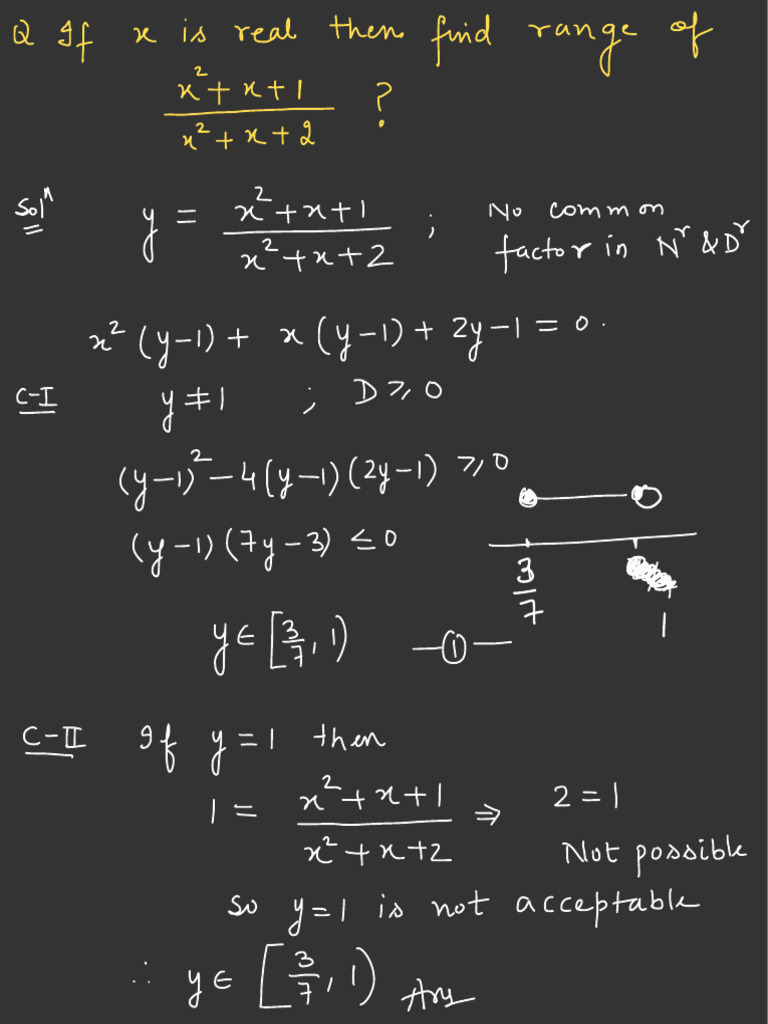 Q If x is real then find range of
(x² + x + 1)/(x² + x + 2) ?
Solⁿ y = (x² + x + 1)/(x² + x + 2) ; No common factor in Nʳ & Dʳ
x² (y−1) + x (y−1) + 2y−1 = 0.
C-I y ≠ 1 ; D ≥ 0
(y−1)² − 4(y−1)(2y−1) ≥ 0
(y−1)(7y−3) ≤ 0
3/7 1
y ∈ [3/7, 1) —①—
C-II If y = 1 then
1 = (x² + x + 1)/(x² + x + 2) ⇒ 2 = 1
Not possible
so y = 1 is not acceptable
∴ y ∈ [3/7, 1) Ans